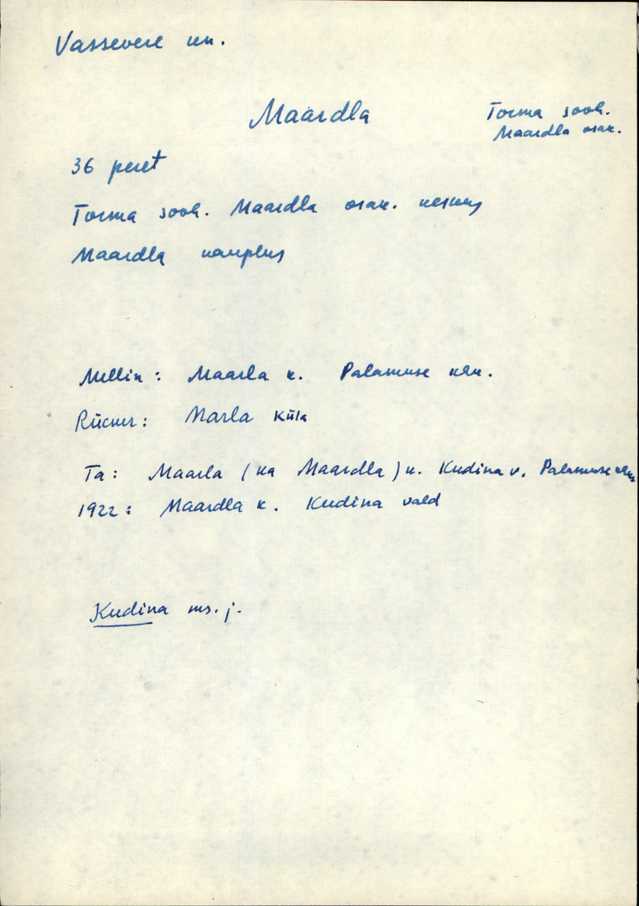 Vassevere kn.
Maardla
Torma sovh.
Maardla osak.
36 peret
Torma sovh. Maardla osak. keskus
Maardla kauplus
Mellin: Maarla k. Palamuse khk.
Rücker: Marla Küla
Ta: Maarla (ka Maardla) k. Kudina v. Palamuse khk
1922: Maardla k. Kudina vald
Kudina ms. j.